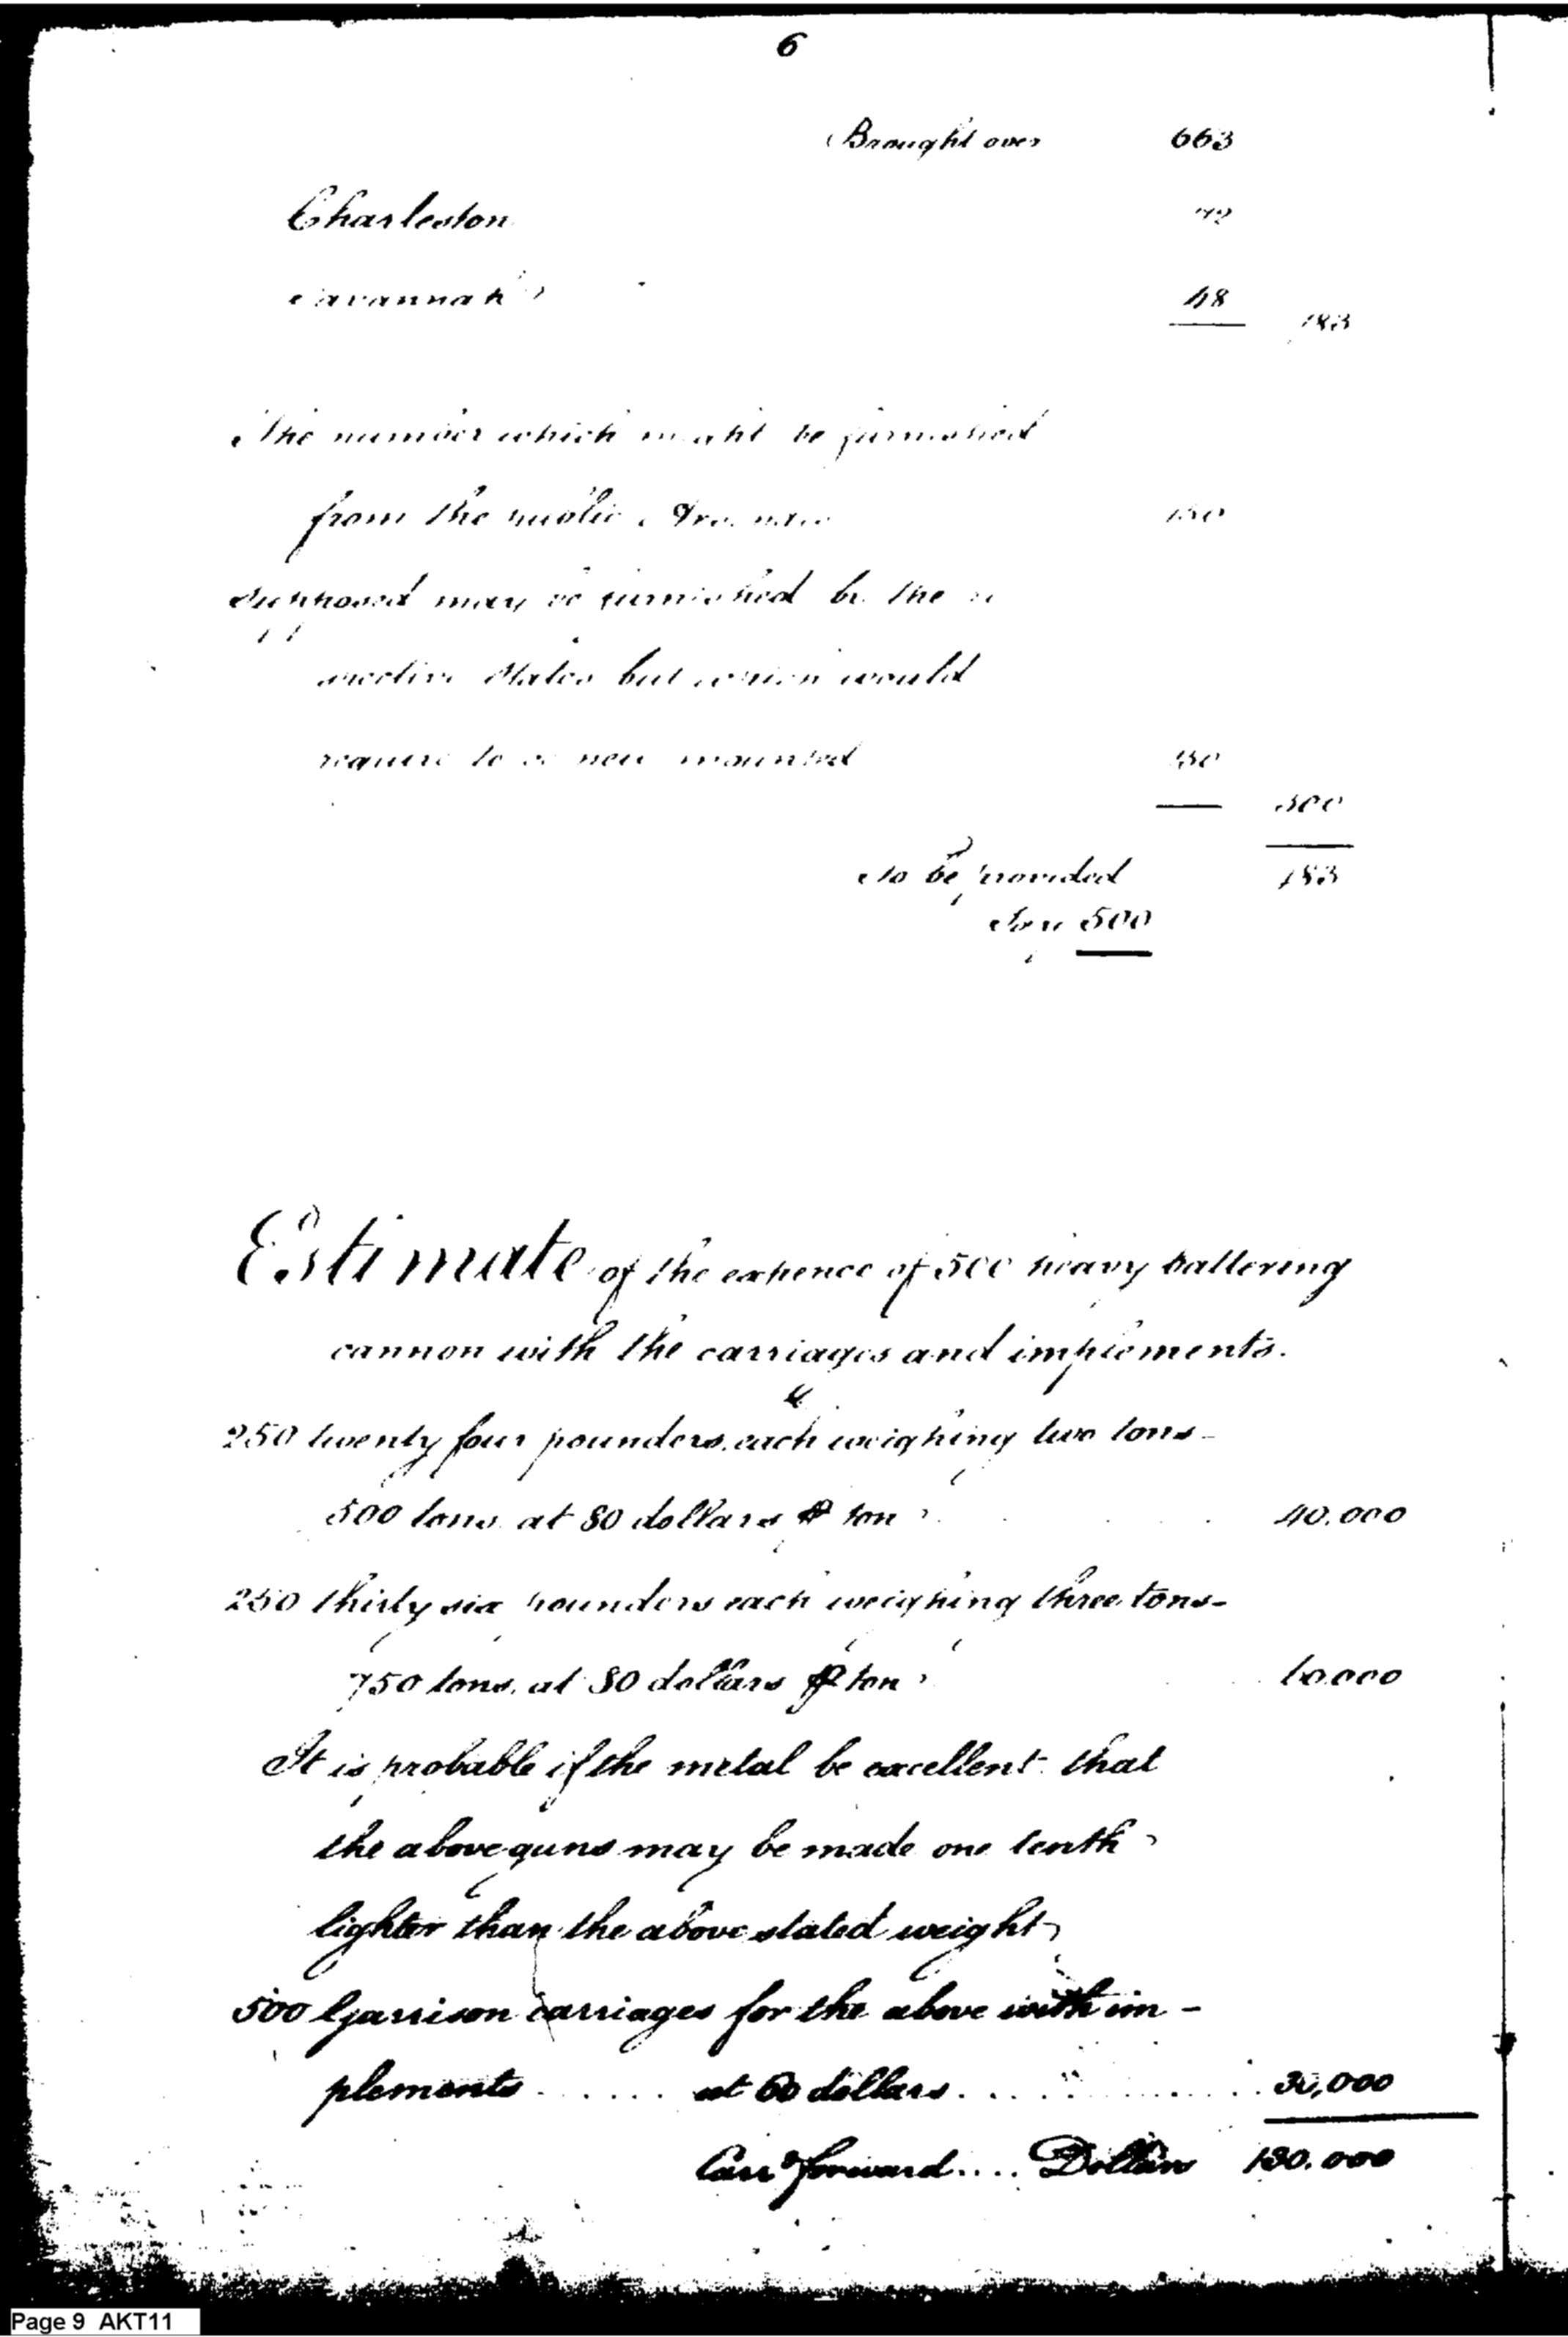 6
Brought over 663
Charleston 72
Savannah 48 783
The number which might be furnished
from the public Arsenals 150
Supposed may be furnished by the re
spective States but which would
require to be new mounted 150
300
to be provided 483
Say 500
Estimate of the expence of 500 heavy battering
cannon with the carriages and implements.
250 twenty four pounders, each weighing two tons-
500 tons at 80 dollars ⅌ ton 40.000
250 thirty six pounders each weighing three tons-
750 tons, at 80 dollars ⅌ ton 60.000
It is probable if the metal be excellent that
the above guns may be made one tenth
lighter than the above stated weight
500 Garrison carriages for the above with im-
plements ..... at 60 dollars .......... 30,000
Carrd forward.... Dollars 130.000
Page 9 AKT11